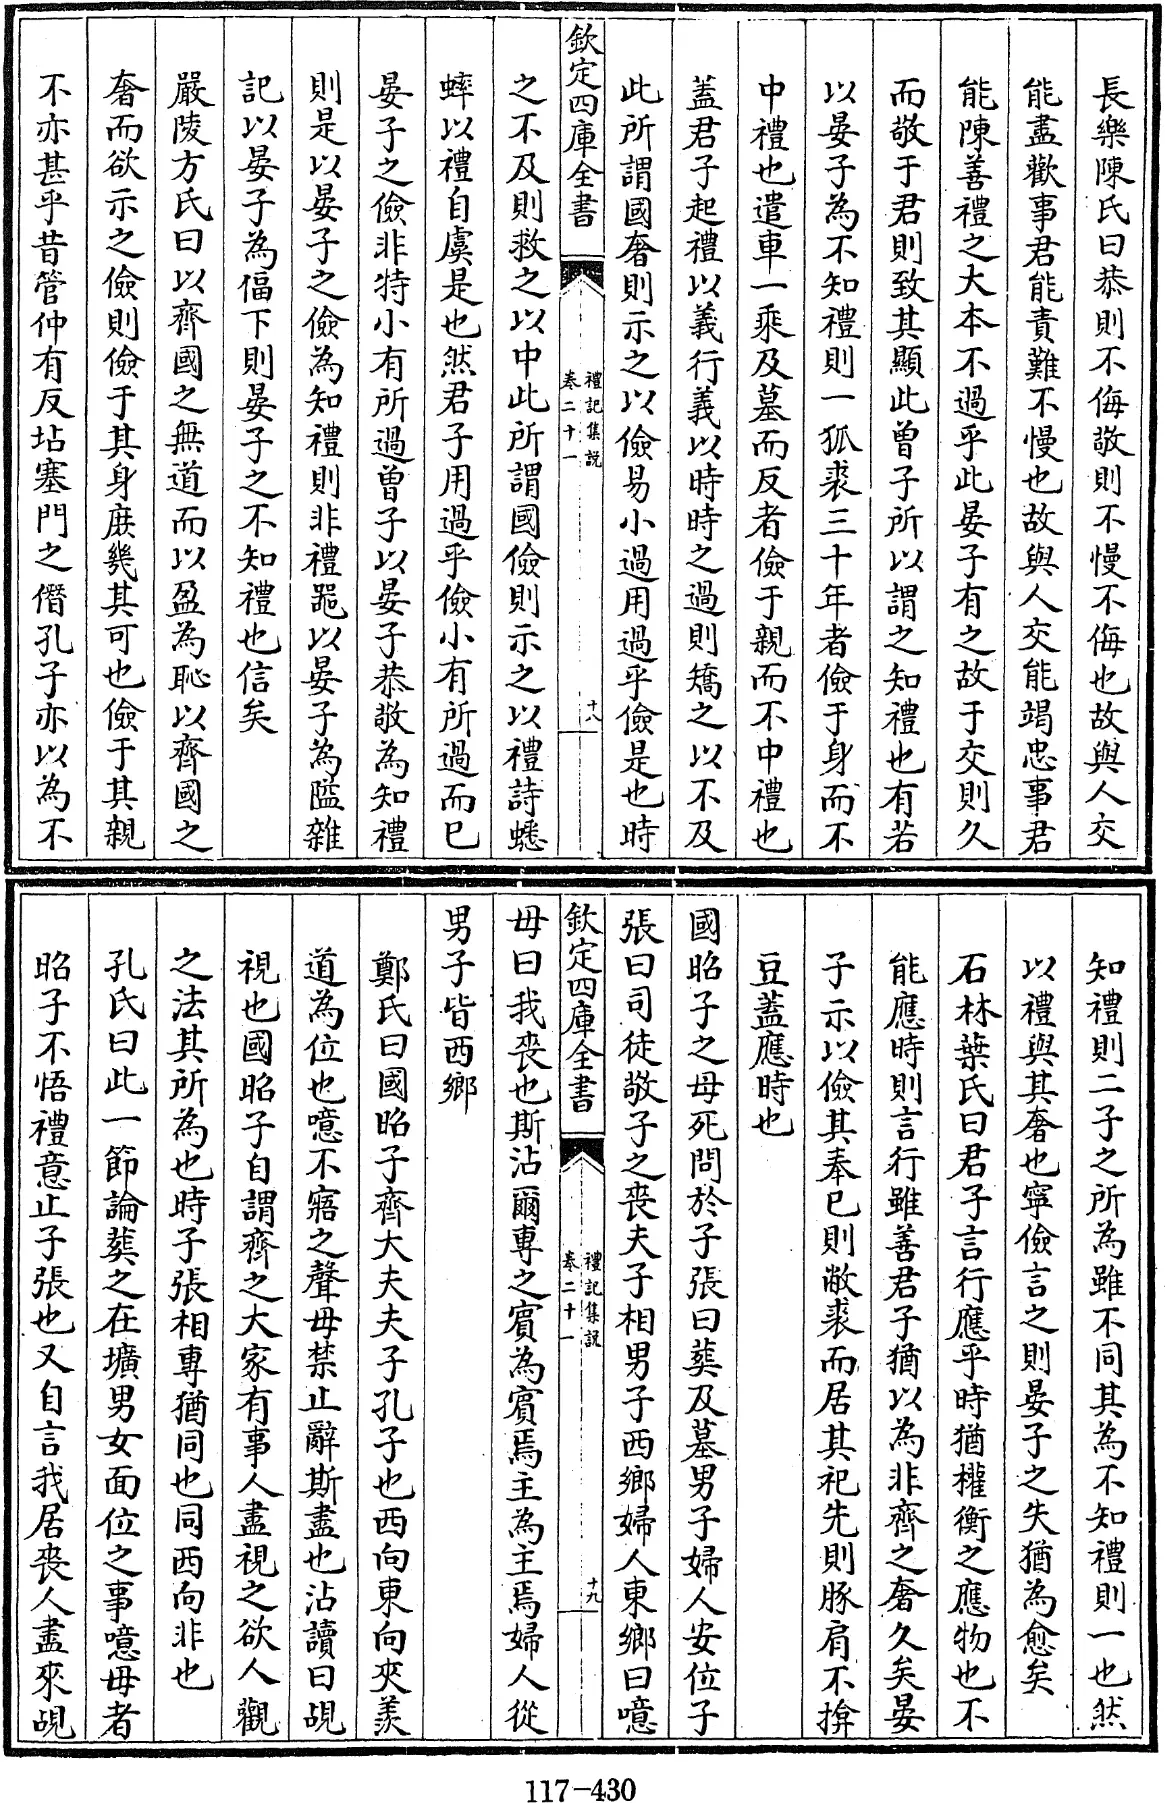 長樂陳氏曰恭則不侮敬則不慢不侮也故與人交
能盡歡事君能責難不慢也故與人交能竭忠事君
能陳善禮之大本不過乎此晏子有之故于交則久
而敬于君則致其顯此曾子所以謂之知禮也有若
以晏子為不知禮則一狐裘三十年者儉于身而不
中禮也遣車一乘及墓而反者儉于親而不中禮也
蓋君子起禮以義行義以時時之過則矯之以不及
此所謂國奢則示之以儉易小過用過乎儉是也時
欽定四庫全書
禮記集説
卷二十一
十八
之不及則救之以中此所謂國儉則示之以禮詩蟋
蟀以禮自虞是也然君子用過乎儉小有所過而已
晏子之儉非特小有所過曾子以晏子恭敬為知禮
則是以晏子之儉為知禮則非禮器以晏子為隘雜
記以晏子為偪下則晏子之不知禮也信矣
嚴陵方氏曰以齊國之無道而以盈為恥以齊國之
奢而欲示之儉則儉于其身庶幾其可也儉于其親
不亦甚乎昔管仲有反坫塞門之僭孔子亦以為不
知禮則二子之所為雖不同其為不知禮則一也然
以禮與其奢也寧儉言之則晏子之失猶為愈矣
石林葉氏曰君子言行應乎時猶權衡之應物也不
能應時則言行雖善君子猶以為非齊之奢久矣晏
子示以儉其奉已則敝裘而居其祀先則豚肩不揜
豆蓋應時也
國昭子之母死問於子張曰葬及墓男子婦人安位子
張曰司徒敬子之喪夫子相男子西鄉婦人東鄉曰噫
欽定四庫全書
禮記集説
卷二十一
十九
毋曰我喪也斯沾爾專之賓為賓焉主為主焉婦人從
男子皆西鄉
鄭氏曰國昭子齊大夫夫子孔子也西向東向夾羨
道為位也噫不寤之聲毋禁止辭斯盡也沾讀曰覘
視也國昭子自謂齊之大家有事人盡視之欲人觀
之法其所為也時子張相專猶同也同西向非也
孔氏曰此一節論葬之在壙男女面位之事噫毋者
昭子不悟禮意止子張也又自言我居喪人盡來覘
117-430